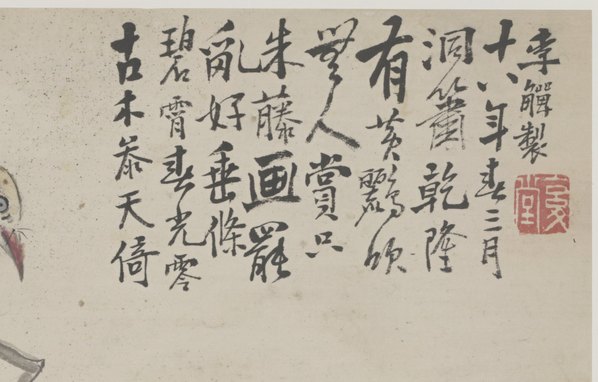 古木參天倚
碧霄春光零
亂好垂條
朱藤画罷
無人賞只
有黃鸝頌
洞簫乾隆
十八年春三月
李觶製
复堂